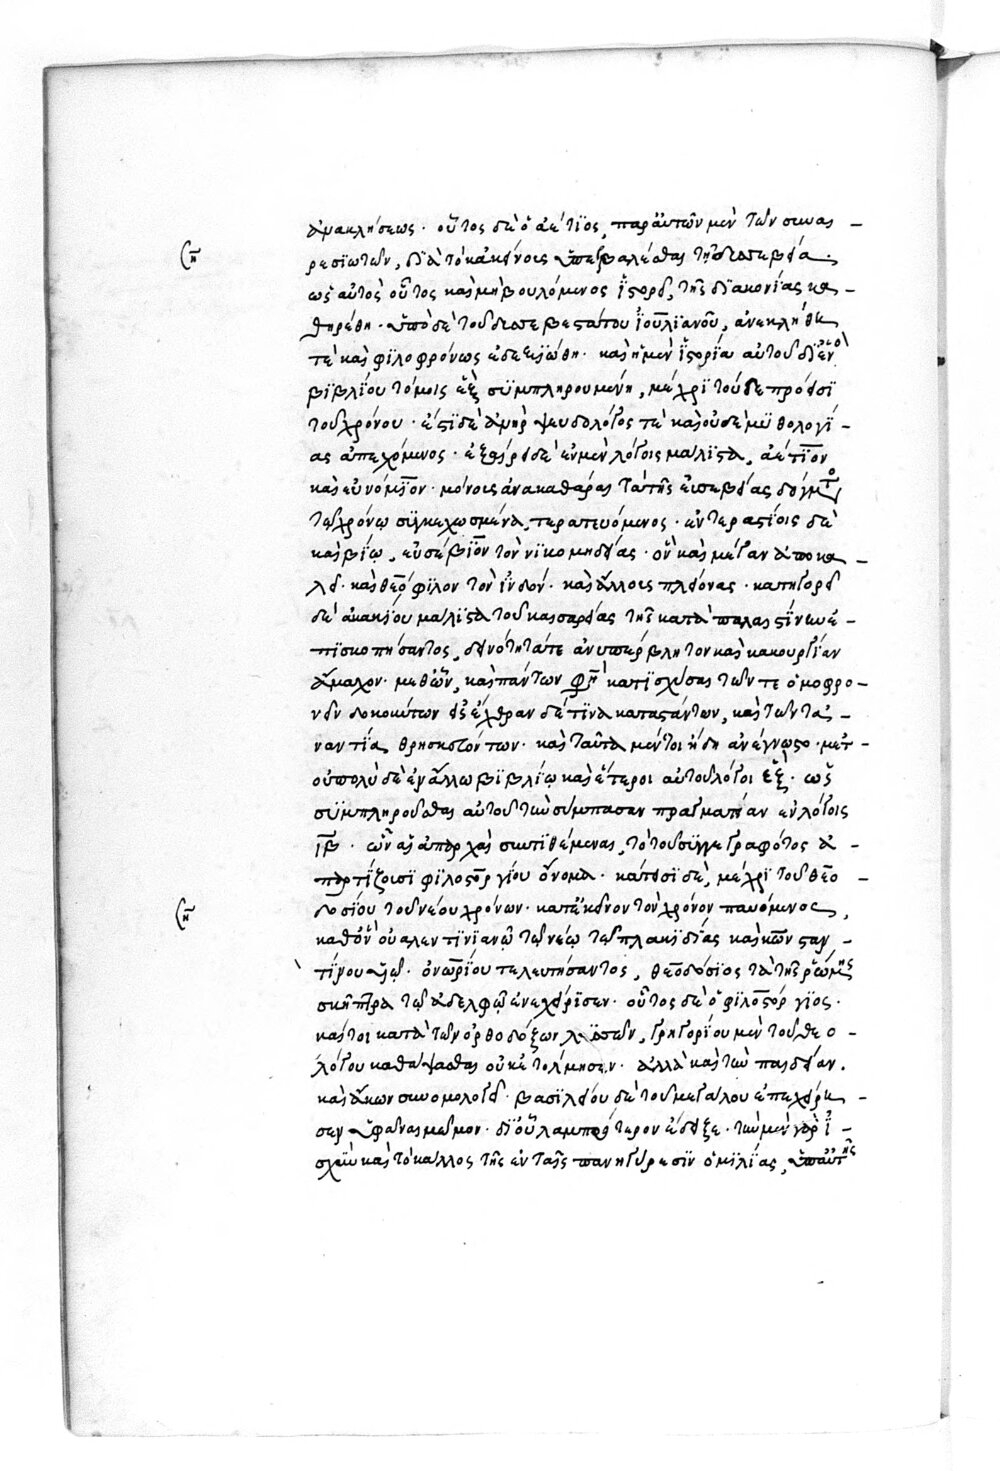 ἀνακλήσεως · οὗτος δὲ ὁ ἀέτϊος, παρ' ἀυτῶν μὲν τῶν συναι -
ρεσϊωτῶν, δϊὰ τὸ κἀκείνοις ὑπερβαλέσθαι τῆ δυσσεβεία ·
ὡς αὐτὸς οὗτος καὶ μὴ βουλόμενος ϊστορεῖ, τῆς δϊακονίας κα -
θηρέθη · ὑπὸ δὲ τοῦ δυσσεβεστάτου ϊουλϊανοῦ, ἀνεκλήθη
τὲ καὶ φϊλοφρόνως ἐδεξϊώθη · καὶ ἡ μὲν ϊστορία αὐτοῦ δϊ' ἑνὸς
βϊβλίου τόμοις ἓξ συμπληρουμένη, μέχρϊ τοῦδε πρόεισϊ
τοῦ χρόνου · ἔστϊ δὲ ἀνὴρ ψευδολόγος τὲ καὶ οὐδὲ μϋθολογί -
ας ἀπεχόμενος · ἐξαίρει δὲ ἐν μὲν λόγοις μάλϊστα, ἀέτϊον
καὶ εὐνόμϊον · μόνοις ἀνακαθάραι τὰ τῆς εὐσεβείας δόγματα
τῶ χρόνω συγκεχωσμένα, τερατευόμενος · ἐν τεραστίοις δὲ
καὶ βίω, εὐσέβϊον τὸν νϊκομηδείας · ὃν καὶ μέγαν ἀποκα -
λεῖ · καὶ θεόφϊλον τὸν ϊνδόν · καὶ ἄλλους πλείονας · κατηγορεῖ
δὲ ἀκακίου μάλϊστα τοῦ καισαρείας τῆς κατὰ παλαιστίνην ἐ -
πϊσκοπήσαντος, δεινότητά τε ἀνυπέρβλητον καὶ κακουργίαν
ἄμαχον · μεθ' ὧν, καὶ πάντων φησὶ κατϊσχῦσαι τῶν τε ὁμοφρο -
νεῖν δοκούντων εἰς ἔχθραν δέ τϊνα καταστάντων, καὶ τῶν τἀ -
ναντία θρησκευόντων · καὶ ταῦτα μέντοι ἤδη ἀνέγνωστο · μετ' -
οὐπολὺ δὲ ἐν ἄλλω βϊβλίω καὶ ἕτεροι αὐτοῦ λόγοι ἓξ · ὡς
συμπληροῦσθαι αὐτοῦ τὴν σύμπασαν πραγματείαν ἐν λόγοις
ϊβ · ὧν αἱ ἀπαρχαὶ συντϊθέμεναι, τὸ τοῦ συγγεγραφότος ἀ -
παρτίζουσϊ φϊλοστοργίου ὄνομα · κάτεισϊ δὲ, μέχρϊ τοῦ θεο -
δοσίου τοῦ νέου χρόνων · κατ' ἐκεῖνον τὸν χρόνον παυόμενος,
καθ' ὃν οὐαλεντϊνϊανῶ τῶ νέω τῶ πλακϊδίας καὶ κωνσταν -
τίνου υἱῶ · ὀνωρίου τελευτήσαντος, θεοδόσϊος τὰ τῆς ῥώμης
σκῆπτρα τῶ ἀδελφῶ ἐνεχείρϊσεν · οὗτος δὲ ὁ φϊλοστόργϊος ·
καίτοι κατὰ τῶν ὀρθοδόξων λυσσῶν, γρηγορίου μὲν τοῦ θεο -
λόγου καθάψασθαι οὐκ ἐτόλμησεν · ἀλλὰ καὶ τὴν παιδείαν ·
καὶ ἄκων συνομολογεῖ · βασϊλείου δὲ τοῦ μεγάλου ἐπεχείρη -
σεν ὑφᾶναι μῶμον · δϊ' οὗ λαμπρότερον ἔδειξε · τὴν μὲν γὰρ ϊ -
σχὺν καὶ τὸ κάλλος τῆς ἐν ταῖς πανηγύρεσϊν ὁμϊλίας, ὑπ' αὐτῆς